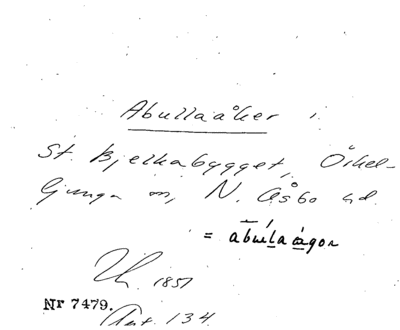 Abullaåker i
St. Bjelkabygget, Örkel-
ljunga sn, N. Åsbo hd.
= abulaágor
1851
Nr 7479.
134